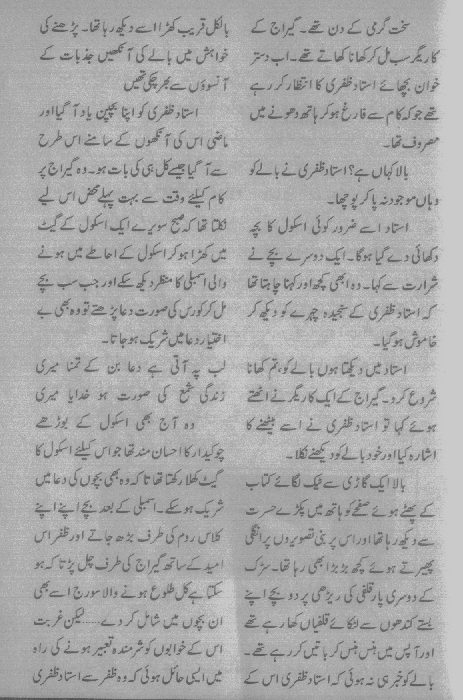 سخت گرمی کے دن تھے۔ گیراج کے
کاریگر سب مل کر کھانا کھاتے تھے۔ اب دستر
خوان بچھائے استاد ظفری کا انتظار کر رہے
تھے جو کہ کام سے فارغ ہو کر ہاتھ دھونے میں
مصروف تھا۔
بالا کہاں ہے؟ استاد ظفری نے بالے کو
وہاں موجود نہ پا کر پوچھا۔
استاد اسے ضرور کوئی اسکول کا بچہ
دکھائی دے گیا ہوگا۔ ایک دوسرے بچے نے
شرارت سے کہا۔ وہ ابھی کچھ اور کہنا چاہتا تھا
کہ استاد ظفری کے سنجیدہ چہرے کو دیکھ کر
خاموش ہو گیا۔
استاد میں دیکھتا ہوں بالے کو، تم کھانا
شروع کرو۔ گیراج کے ایک کاریگر نے اٹھتے
ہوئے کہا تو استاد ظفری نے اسے بیٹھنے کا
اشارہ کیا اور خود بالے کو دیکھنے نکلا۔
بالا ایک گاڑی سے ٹیک لگائے کتاب
کے پھٹے ہوئے صفحے کو ہاتھ میں پکڑے حسرت
سے دیکھ رہا تھا اور اس پر بنی تصویروں پر انگلی
پھیرتے ہوئے کچھ بڑبڑا بھی رہا تھا۔ سڑک
کے دوسری پار قلفی کی ریڑھی پر دو بچے اپنے
بستے کندھوں سے لٹکائے قلفیاں کھا رہے تھے
اور آپس میں ہنس ہنس کر باتیں کر رہے تھے۔
بالے کو خبر ہی نہ ہوئی کہ استاد ظفری اس کے
بالکل قریب کھڑا اسے دیکھ رہا تھا۔ پڑھنے کی
خواہش میں بالے کی آنکھیں جذبات کے
آنسوؤں سے بھر چکی تھیں
استاد ظفری کو اپنا بچپن یاد آ گیا اور
ماضی اس کی آنکھوں کے سامنے اس طرح
سے آ گیا جیسے کل ہی کی بات ہو۔ وہ گیراج پر
کام کیلئے وقت سے بہت پہلے محض اس لیے
نکلتا تھا کہ صبح سویرے ایک اسکول کے گیٹ
میں کھڑا ہو کر اسکول کے احاطے میں ہونے
والی اسمبلی کا منظر دیکھ سکے اور جب سب بچے
مل کر کورس کی صورت دعا پڑھتے تو وہ بھی بے
اختیار دعا میں شریک ہو جاتا۔
لب پہ آتی ہے دعا بن کے تمنا میری
زندگی شمع کی صورت ہو خدایا میری
وہ آج بھی اسکول کے بوڑھے
چوکیدار کا احسان مند تھا جو اس کیلئے اسکول کا
گیٹ کھلا رکھتا تھا تا کہ وہ بھی بچوں کی دعا میں
شریک ہو سکے۔ اسمبلی کے بعد بچے اپنے اپنے
کلاس روم کی طرف بڑھ جاتے اور ظفر اس
امید کے ساتھ گیراج کی طرف چل پڑتا کہ ہو
سکتا ہے کل طلوع ہونے والا سورج اسے بھی
ان بچوں میں شامل کر دے.....لیکن غربت
اس کے خوابوں کو شرمندہ تعبیر ہونے کی راہ
میں ایسی حائل ہوئی کہ وہ ظفر سے استاد ظفری